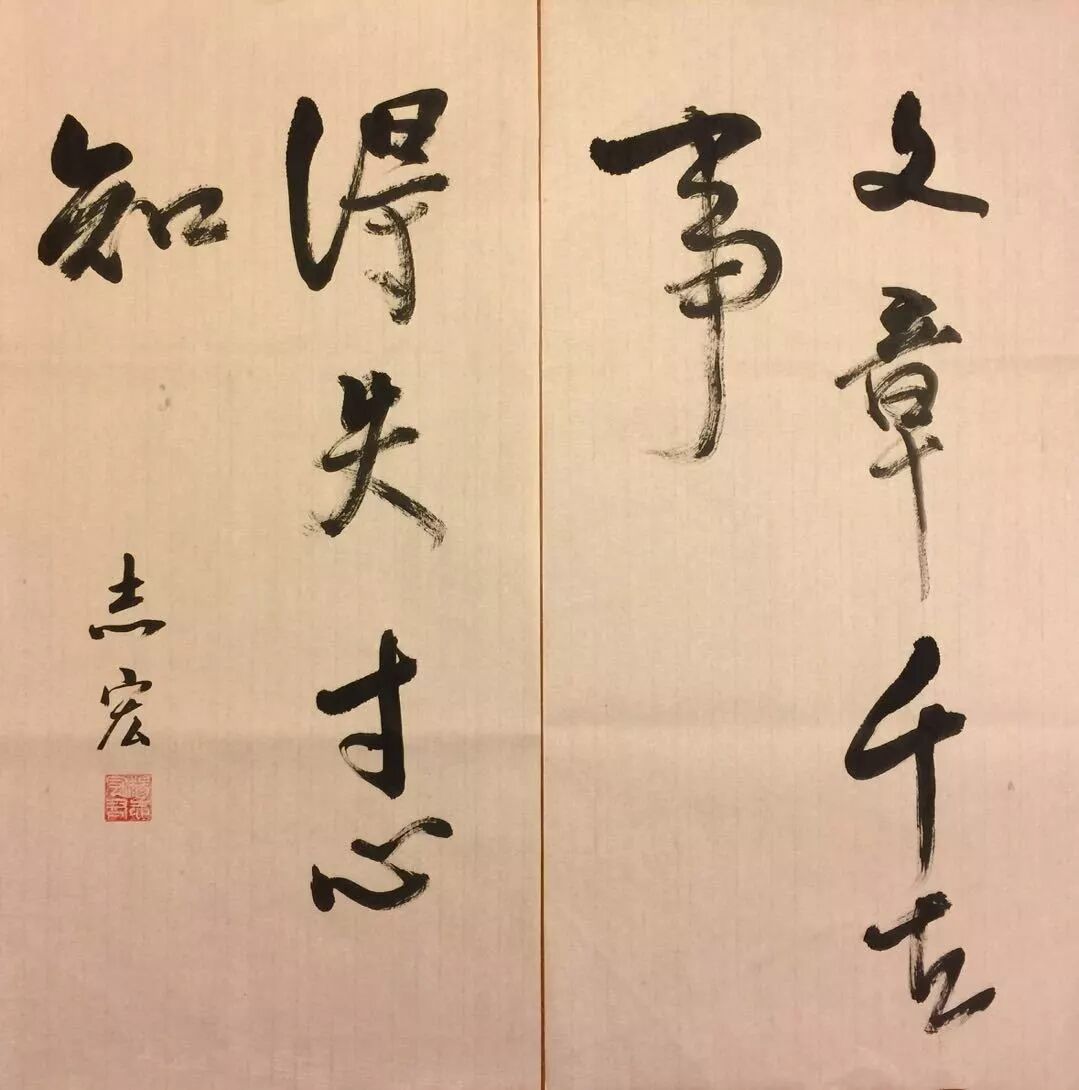 文章千古
事
得失寸心
知
志宏